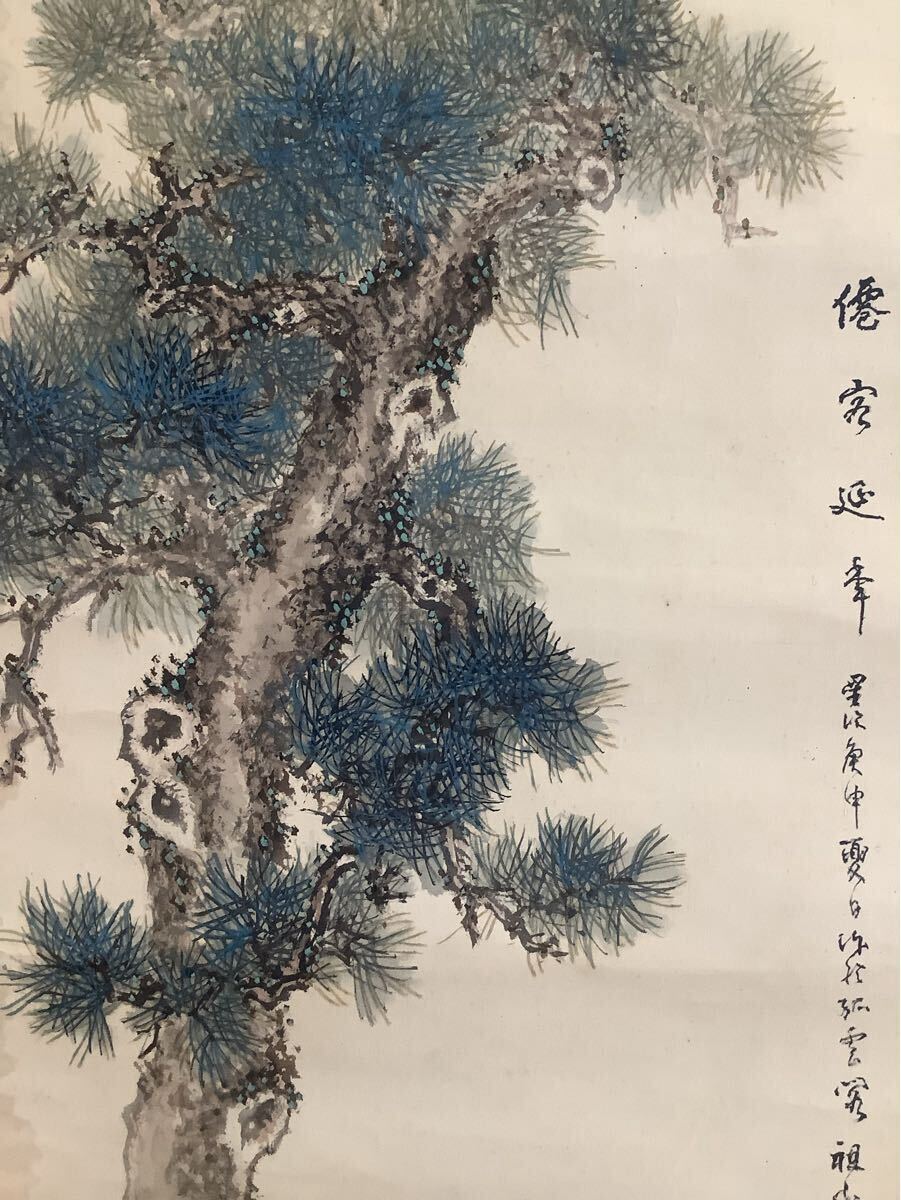 僊客延年 星次庚申夏日作於孤雲閣 祖